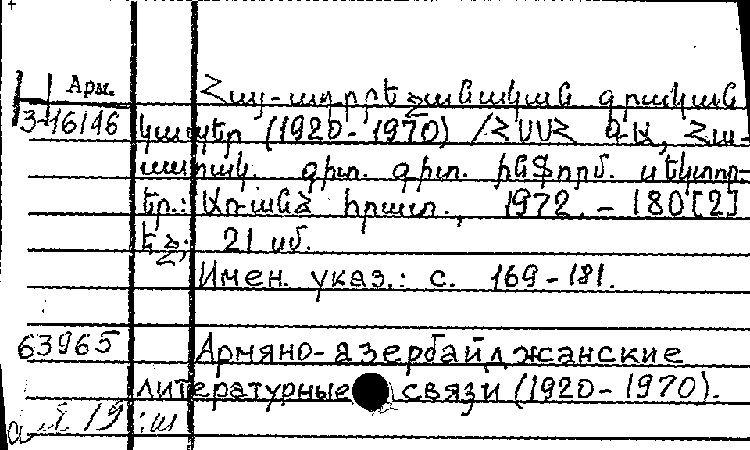 Арм.
Հայ-ադրբեջանական գրական
3-46146
կապեր (1920-1970) /ՀՍՍՀ ԳԱ, Հա-
սարակ. գիտ. գիտ. ինֆորմ. սեկտոր-
Եր.: Առանձ հրատ., 1972. – 180[2]
էջ; 21 սմ.
Имен. указ.: с. 169-181.
63965
Армяно-азербайджанские
литературные связи (1920-1970).